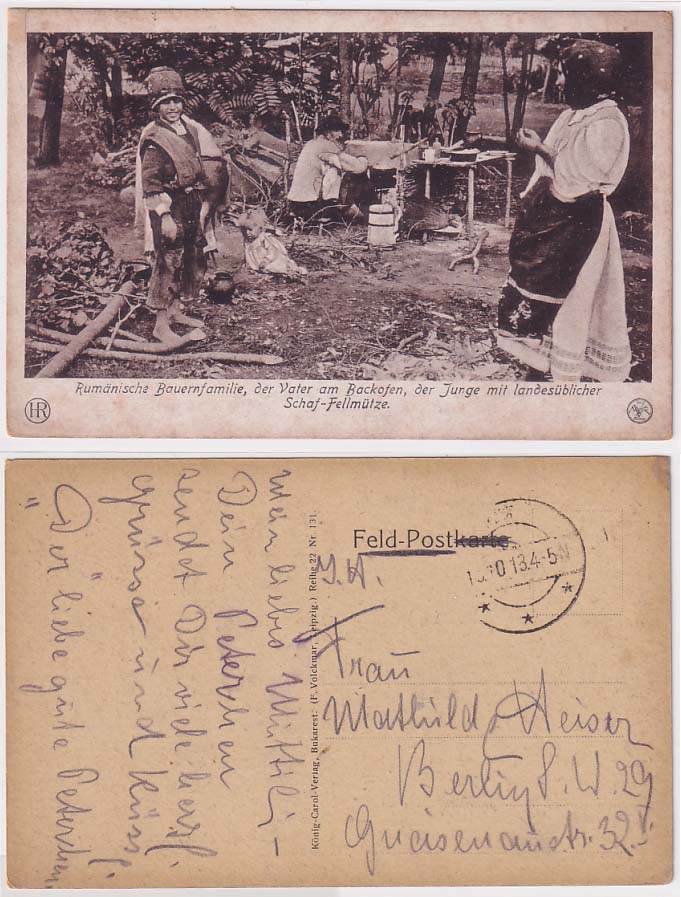 Rumänische Bauernfamilie, der Vater am Backofen, der Junge mit landesüblicher
Schaf-Fellmütze.
HR
Feld-Postkarte
13.4-5N
König-Carol-Verlag, Bukarest. (F. Volckmar, Leipzig.) Reihe 22 Nr. 131.
Mein liebes Muttili, –
Dein Peterchen
sendet Dir viele herzl.
Grüsse und Küsse!
"Der liebe gute Peterchen"
Frau
Mathilde Heiser
Berlin S.W. 29
Gneisenaustr. 32